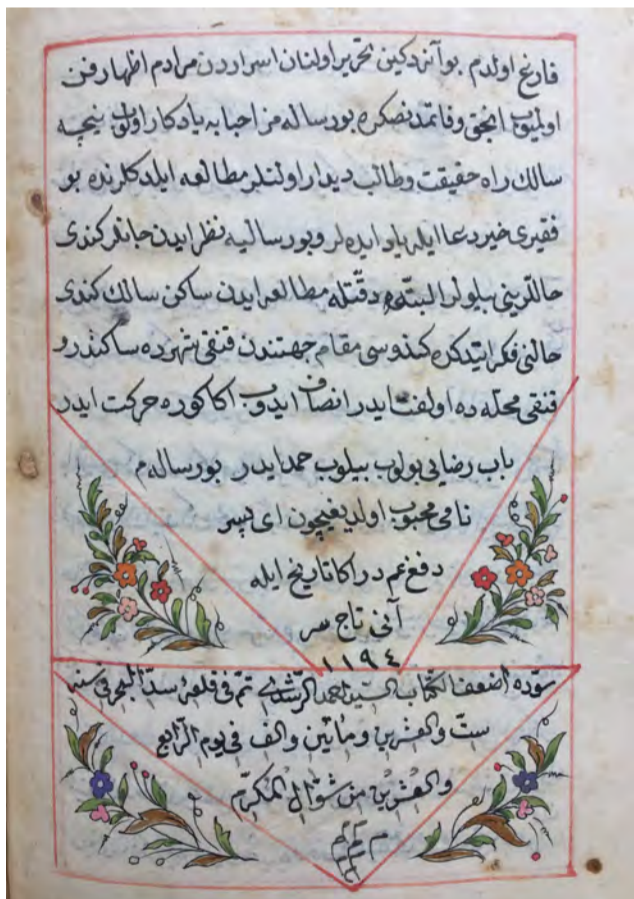 فارغ اولدم بو آنه دكين تحرير اولنان اسراردن مرادم اظهار فن
اوليوب انجق وفاتمدنصكره بو رساله مز احبابه يادكار اولوب نيچه
سالك راه حقيقت وطالب ديدار اولنلر مطالعه ايلدكلرنده بو
فقيرى خير دعا ايله ياد ايده لر و بو رساليه نظر ايدن جانلر كندى
حاللرينى بيلورلر البته دقتله مطالعه ايدن ساكن سالك كندى
حالنى فكر ايتدكده كندوسى مقام جهتندن قنقى شهرده ساكندر و
قنقى محله ده اولفت ايدر انصاف ايدوب اكا كوره حركت ايدر
باب رضايى بولوب بيلوب حمد ايدر بو رساله م
نامى محبوب اولديغيچون اى پسر
دفع غم در اكا تاريخ ايله
آنى تاج سر
١١٩٤
سوّده اضعف الكتّاب السيد احمد الرشدى تم فى قلعهٔ سدّ البحر فى سنه
ستّ والعشرين ومأتين والف فى يوم الرابع
والعشرين من شوال المكرم
م م م